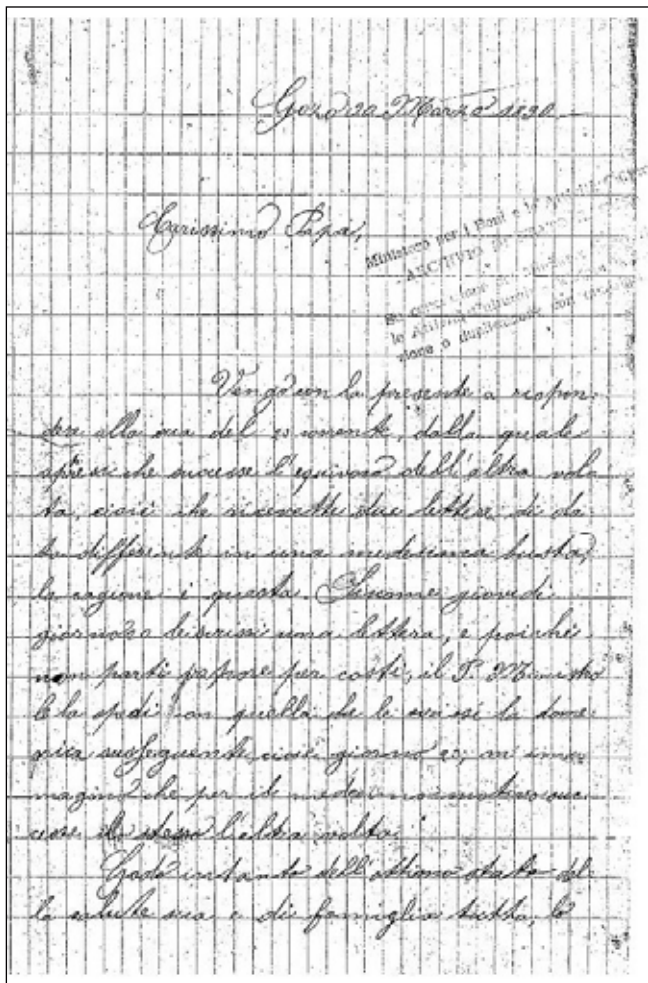 Gozo 20 Marzo 1890
Carissimo Papà,
Ministero per i Beni e le Attività
ARCHIVIO
Vengo con la presente a rispon
dere alla sua del corrente, dalla quale
appresi che successe l'equivoco dell'altra vol
ta, cioè che ricevette due lettere di da
ta differente in una medesima busta,
la ragione è questa. giovedì
giorno 20 le scrissi una lettera, e poichè
non partì vapore per costì, il P. Ministro
la spedì con quella che le scrissi la dome
nica susseguente, cioè giorno m'im
magino che per il medesimo motivo suc
cesse lo stesso l'altra volta.
Godo intanto dell'ottimo stato del
la salute sua e di famiglia tutta, le